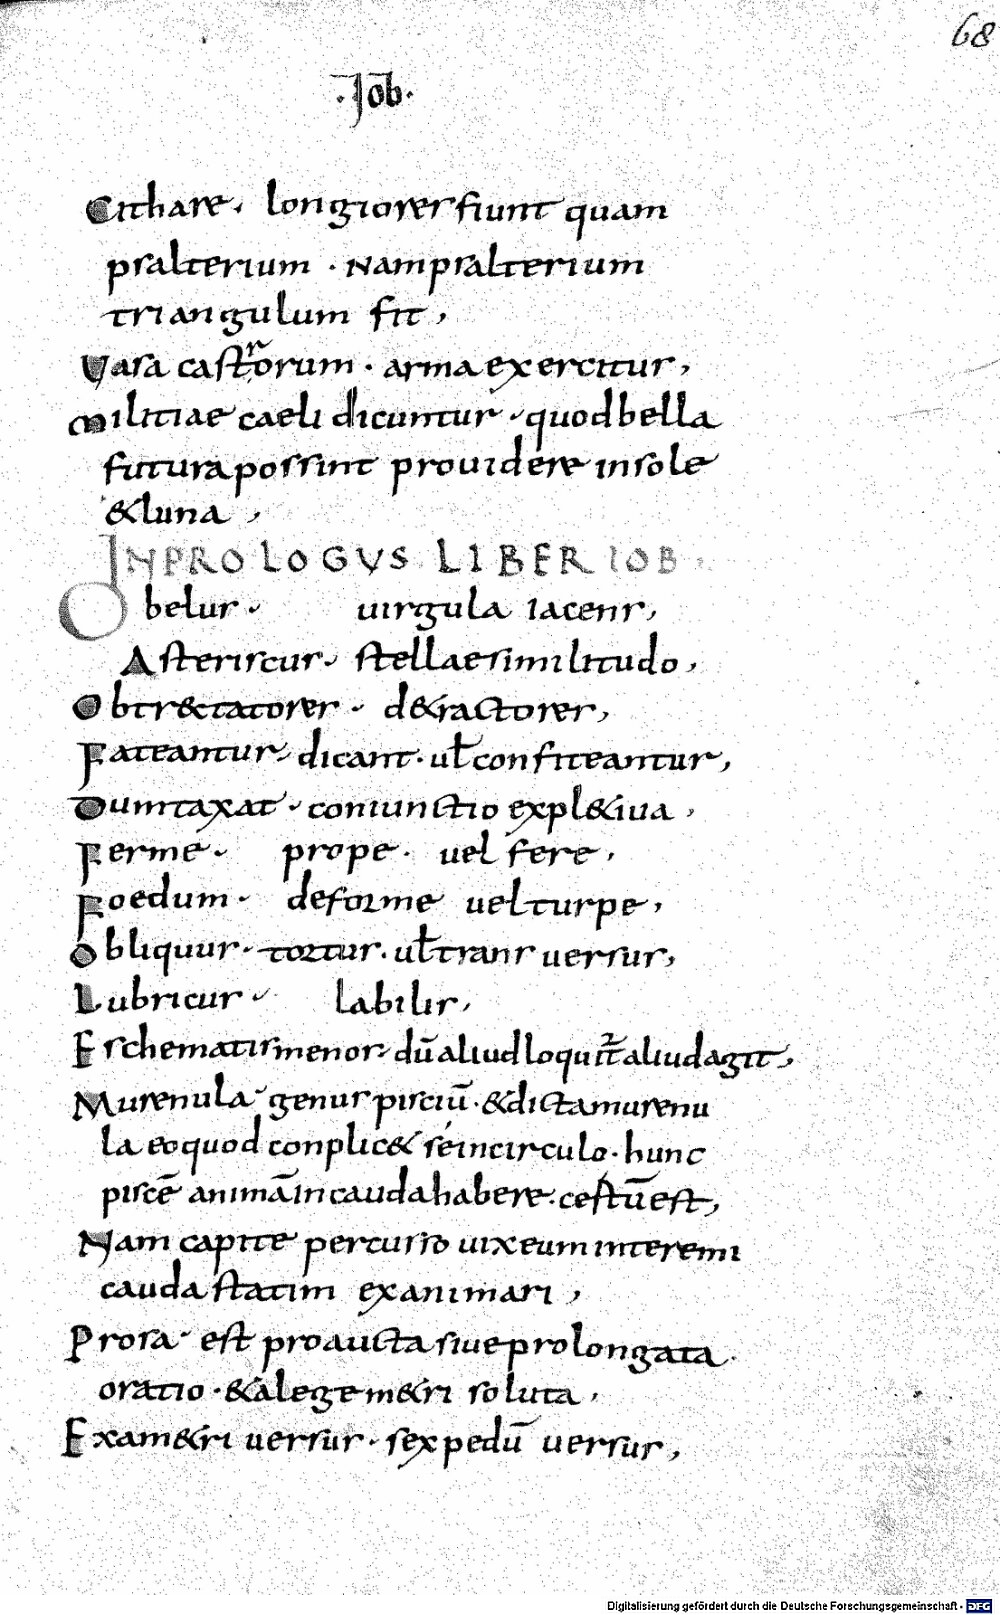 68
·Iob·
Cithare· longiores fiunt quam
psalterium · Nam psalterium
triangulum fit,
Vasa castrorum · arma exercitus,
Militiae caeli dicuntur · quod bella
futura possint prouidere in sole
&luna,
IN PROLOGVS LIBER IOB·
Obelus· uirgula iacens,
Asteriscus· stellae similitudo,
Obtr&ctatores · d&ractores,
Fateantur· dicant · uɫ confiteantur,
Dumtaxat · coniunctio expl&iua,
Ferme· prope · uel fere,
Foedum · deforme uel turpe,
Obliquus · tortus · uɫ transuersus,
Lubricus · labilis,
Eschematismenos· dū aliud loquit̄ aliud agit,
Murenula· genus pisciū · & dicta murenu
la eo quod conplic& sé in circulo · hunc
piscē animā in cauda habere · cestū est,
Nam capite percusso uix eum interemi
cauda statim exanimari,
Prosa· est proaucta siue prolongata·
oratio · & a lege m&ri soluta,
Exam&ri uersus · sex pedū uersus,
Digitalisierung gefördert durch die Deutsche Forschungsgemeinschaft - DFG